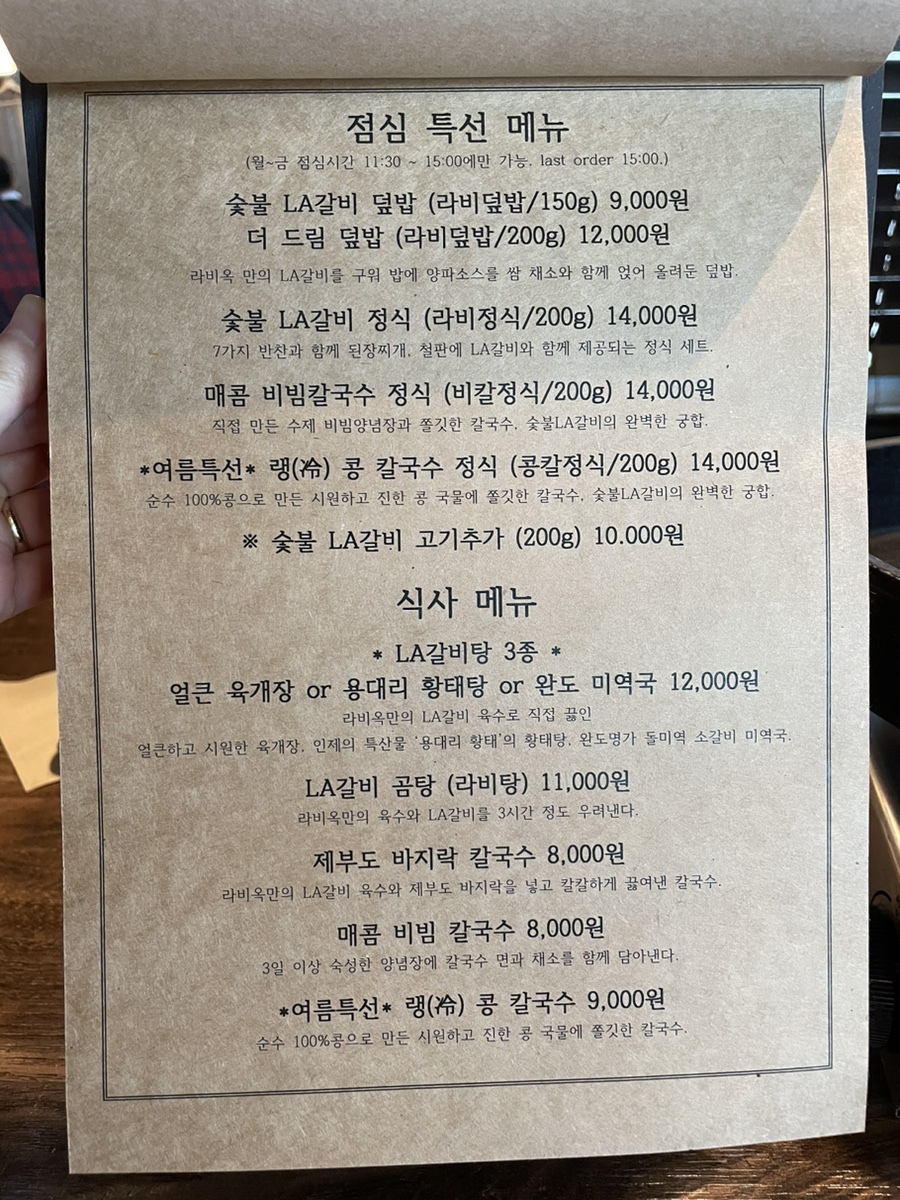 점심 특선 메뉴
(월~금 점심시간 11:30 ~ 15:00에만 가능. last order 15:00.)
숯불 LA갈비 덮밥 (라비덮밥/150g) 9,000원
더 드림 덮밥 (라비덮밥/200g) 12,000원
라비옥 만의 LA갈비를 구워 밥에 양파소스를 쌈 채소와 함께 얹어 올려둔 덮밥.
숯불 LA갈비 정식 (라비정식/200g) 14,000원
7가지 반찬과 함께 된장찌개, 철판에 LA갈비와 함께 제공되는 정식 세트.
매콤 비빔칼국수 정식 (비칼정식/200g) 14,000원
직접 만든 수제 비빔양념장과 쫄깃한 칼국수, 숯불LA갈비의 완벽한 궁합.
*여름특선* 랭(冷) 콩 칼국수 정식 (콩칼정식/200g) 14,000원
순수 100%콩으로 만든 시원하고 진한 콩 국물에 쫄깃한 칼국수, 숯불LA갈비의 완벽한 궁합.
※ 숯불 LA갈비 고기추가 (200g) 10.000원
식사 메뉴
* LA갈비탕 3종 *
얼큰 육개장 or 용대리 황태탕 or 완도 미역국 12,000원
라비옥만의 LA갈비 육수로 직접 끓인
얼큰하고 시원한 육개장, 인제의 특산물 '용대리 황태'의 황태탕, 완도명가 돌미역 소갈비 미역국.
LA갈비 곰탕 (라비탕) 11,000원
라비옥만의 육수와 LA갈비를 3시간 정도 우려낸다.
제부도 바지락 칼국수 8,000원
라비옥만의 LA갈비 육수와 제부도 바지락을 넣고 칼칼하게 끓여낸 칼국수.
매콤 비빔 칼국수 8,000원
3일 이상 숙성한 양념장에 칼국수 면과 채소를 함께 담아낸다.
*여름특선* 랭(冷) 콩 칼국수 9,000원
순수 100%콩으로 만든 시원하고 진한 콩 국물에 쫄깃한 칼국수.